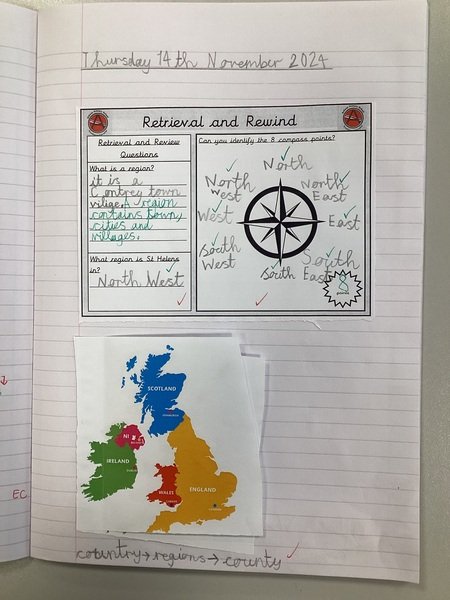 Thursday 14th November 2024
Retrieval and Rewind
Retrieval and Review
Questions
What is a region?
it is a
Contrey town
vilige. A region
contains towns,
cities and
villages.
What region is St Helens
in?
North West
Can you identify the 8 compass points?
North
North
West
North
East
West
East
South
West
South
South
East
8
SCOTLAND
EDINBURGH
NI
BELFAST
IRELAND
DUBLIN
WALES
CARDIFF
ENGLAND
LONDON
country → regions → county
EC